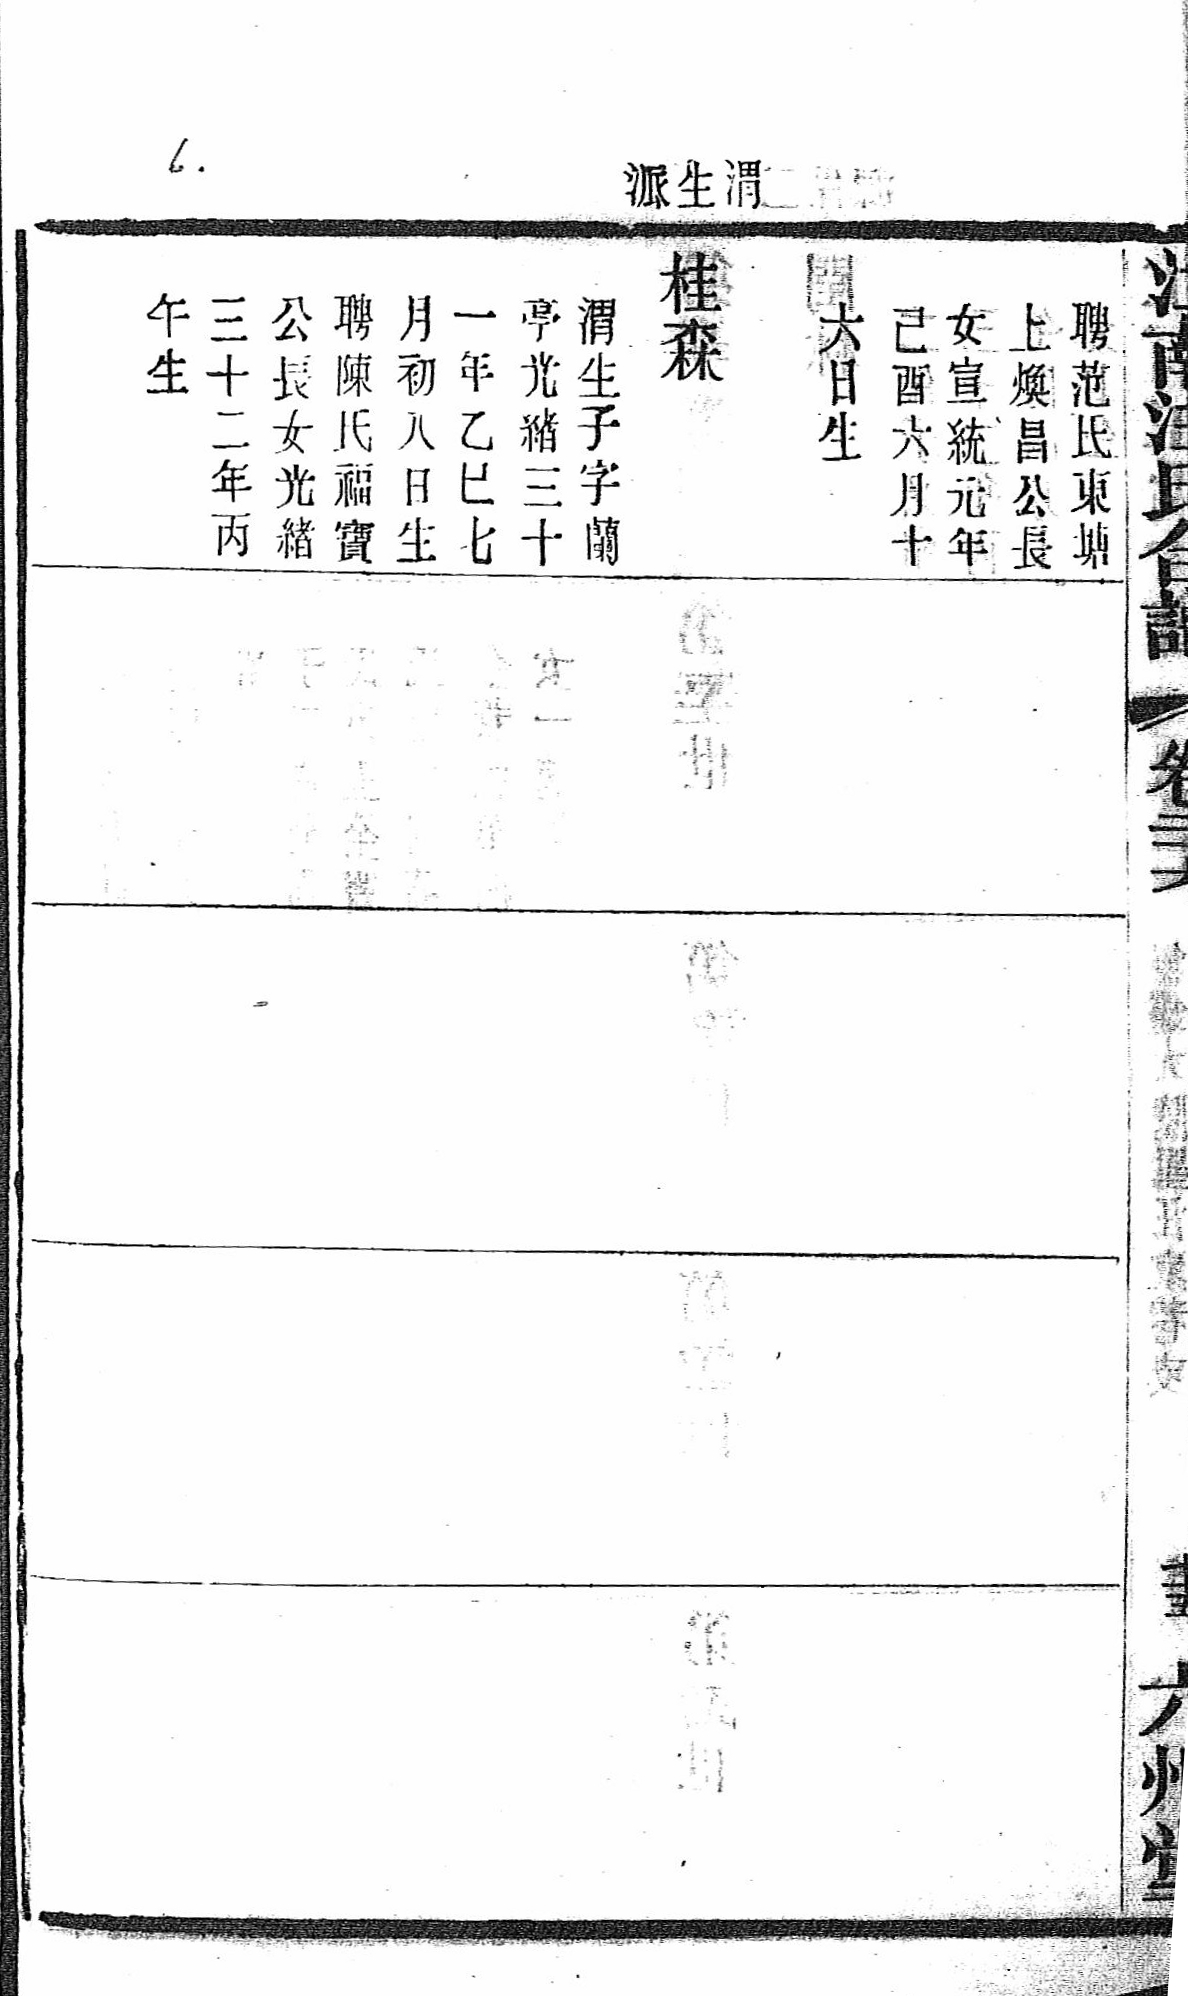 6.
渭生派
聘范氏東塘
上煥昌公長
女宣統元年
己酉六月十
六日生
桂森
渭生子字蘭
亭光緒三十
一年乙巳七
月初八日生
聘陳氏福寶
公長女光緒
三十二年丙
午生